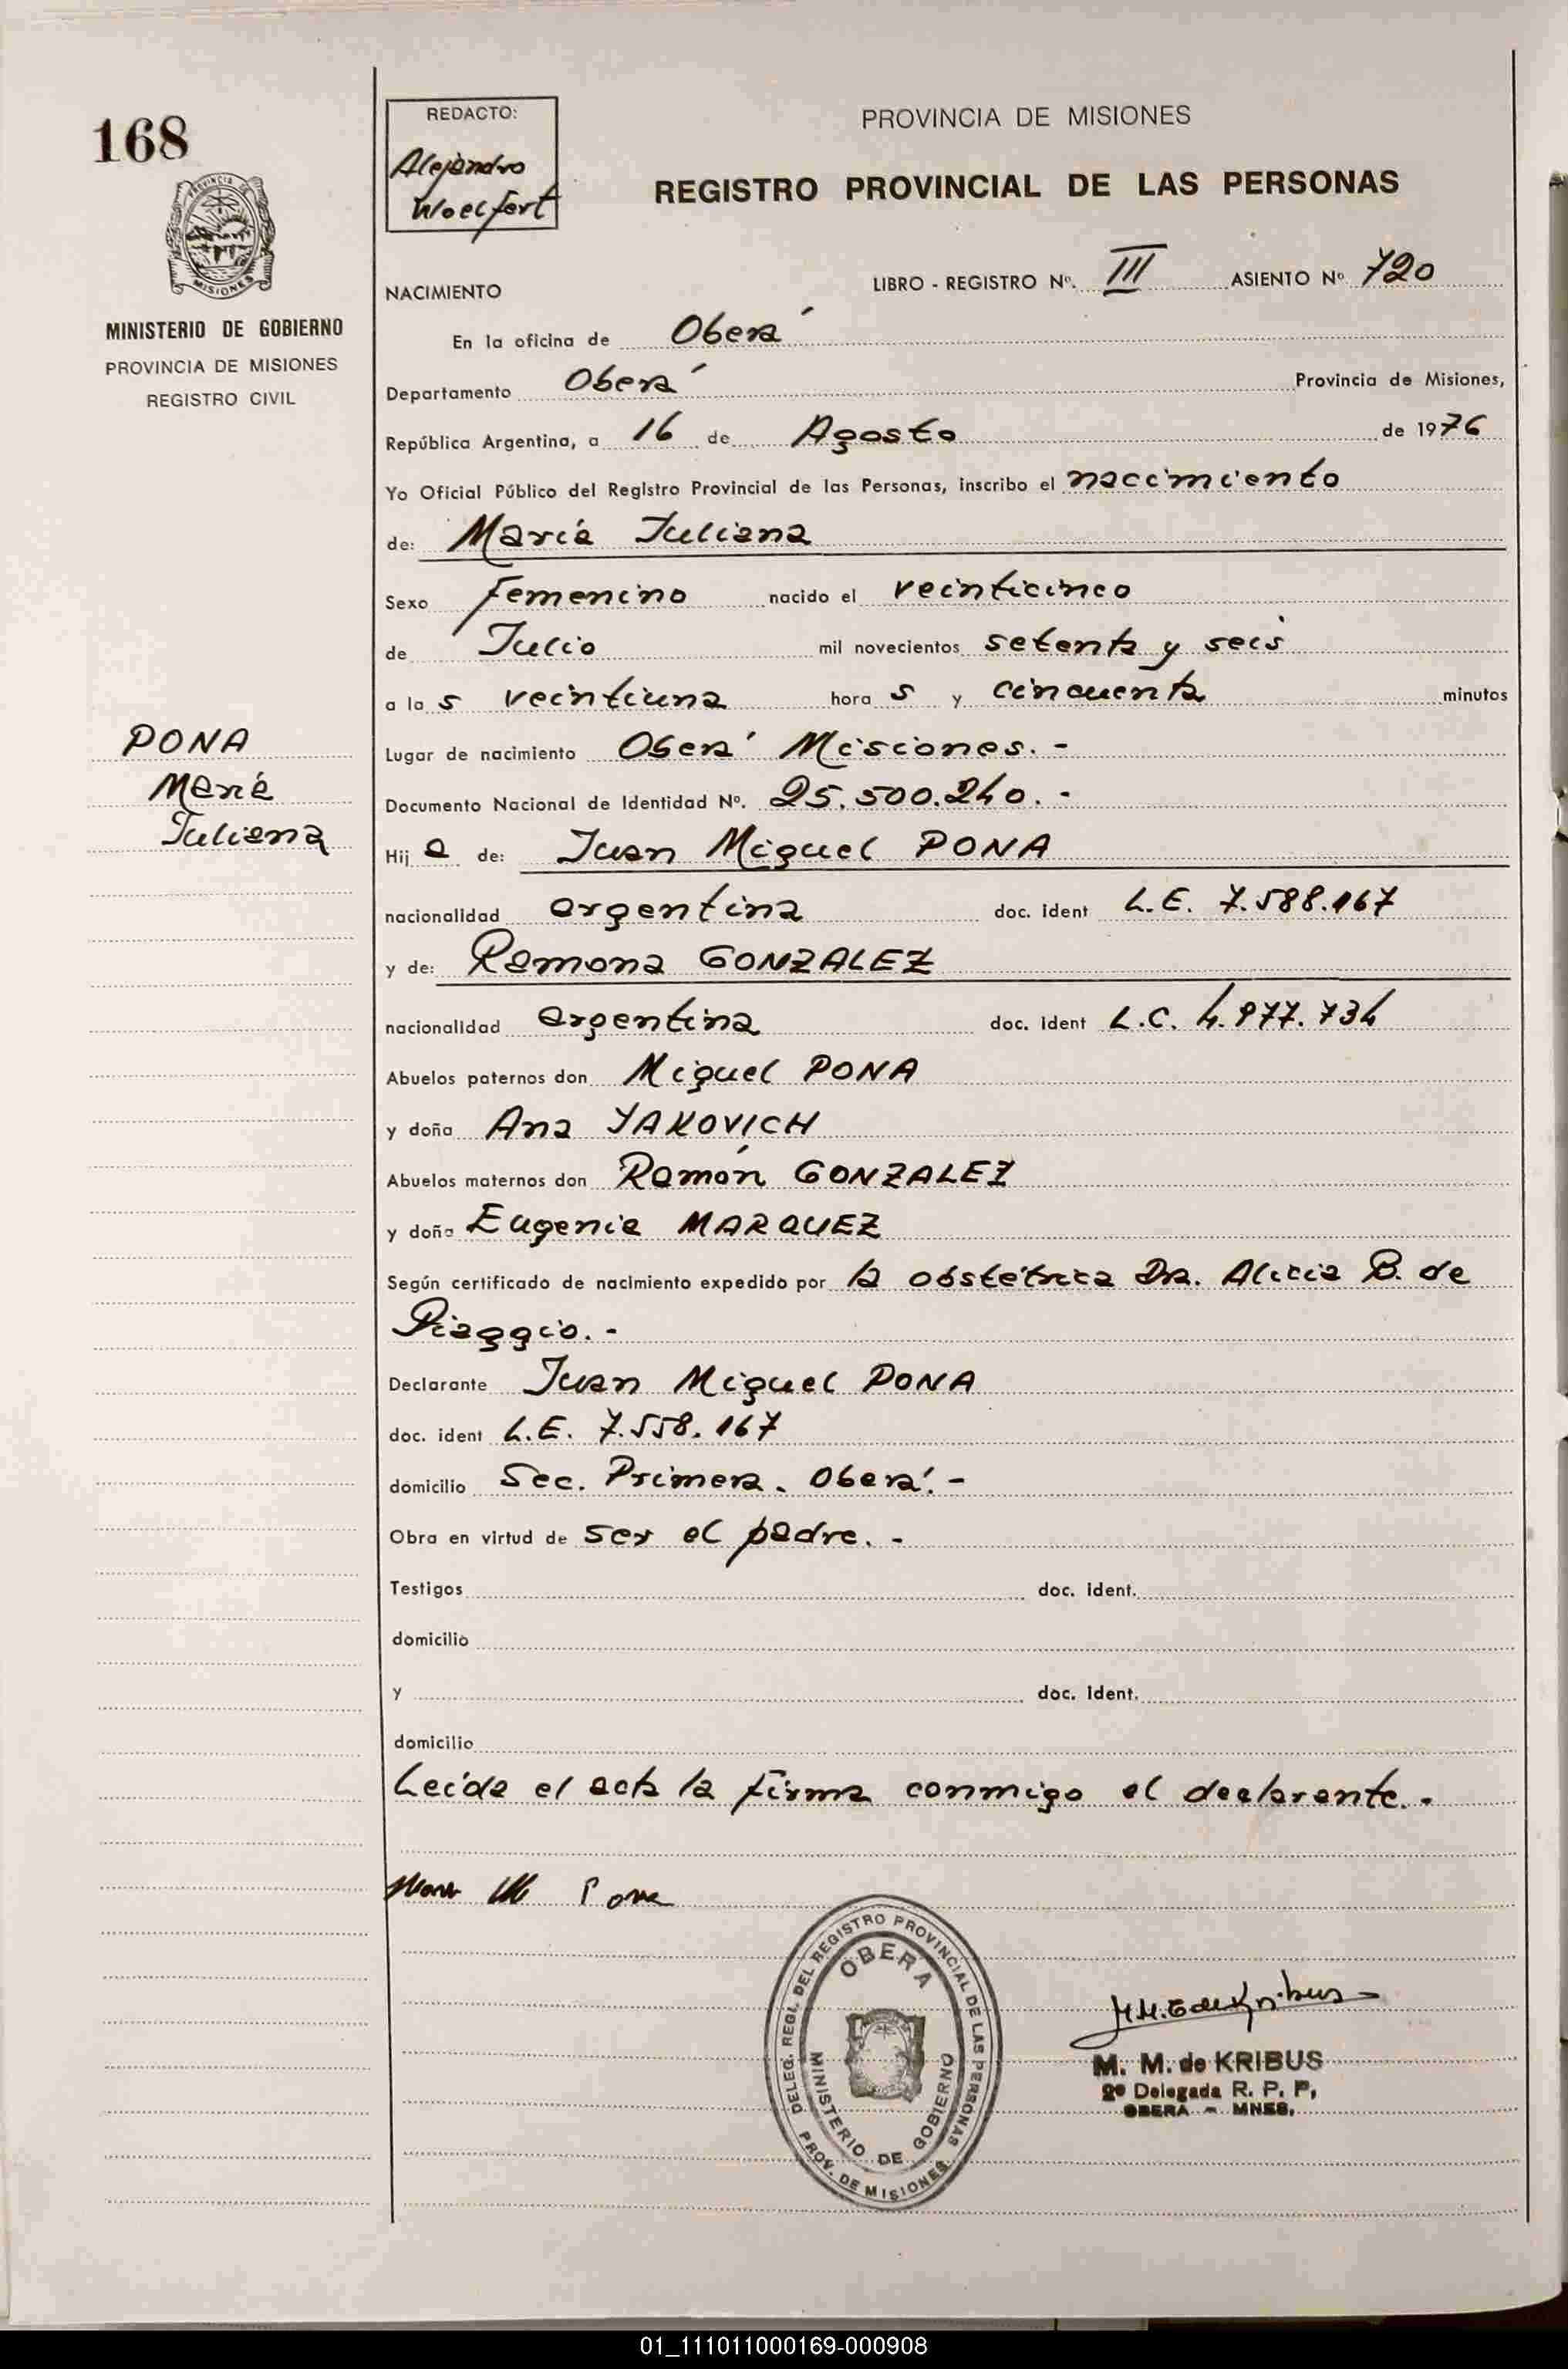 168
PROVINCIA DE
MISIONES
MINISTERIO DE GOBIERNO
PROVINCIA DE MISIONES
REGISTRO CIVIL
PONA
María
Juliana
REDACTO:
Alejandro
Woelfert
PROVINCIA DE MISIONES
REGISTRO PROVINCIAL DE LAS PERSONAS
LIBRO - REGISTRO Nº. III ASIENTO Nº 720
NACIMIENTO
En la oficina de Oberá
Departamento Oberá Provincia de Misiones,
República Argentina, a 16 de Agosto de 1976
Yo Oficial Público del Registro Provincial de las Personas, inscribo el nacimiento
de: María Juliana
Sexo Femenino nacido el veinticinco
de Julio mil novecientos setenta y seis
a la s veintiuna hora s y cincuenta minutos
Lugar de nacimiento Oberá Misiones. -
Documento Nacional de Identidad Nº. 25.500.240. -
Hij a de: Juan Miguel PONA
nacionalidad argentina doc. ident L.E. 7.588.167
y de: Ramona GONZALEZ
nacionalidad argentina doc. ident L.C. 4.977.734
Abuelos paternos don Miguel PONA
y doña Ana YAKOVICH
Abuelos maternos don Ramón GONZALEZ
y doña Eugenia MARQUEZ
Según certificado de nacimiento expedido por la obstétrica Dra. Alicia B. de
Piaggio. -
Declarante Juan Miguel PONA
doc. ident L.E. 7.558.167
domicilio Sec. Primera. Oberá. -
Obra en virtud de ser el padre. -
Testigos doc. ident.
domicilio
y doc. ident.
domicilio
Leída el acta la firma conmigo el declarante. -
Pona
DELEG. REGL. DEL REGISTRO PROVINCIAL DE LAS PERSONAS
OBERA
MINISTERIO DE GOBIERNO
PROV. DE MISIONES
M. M. de KRIBUS
2º Delegada R. P. P,
OBERA - MNES.
01_111011000169-000908